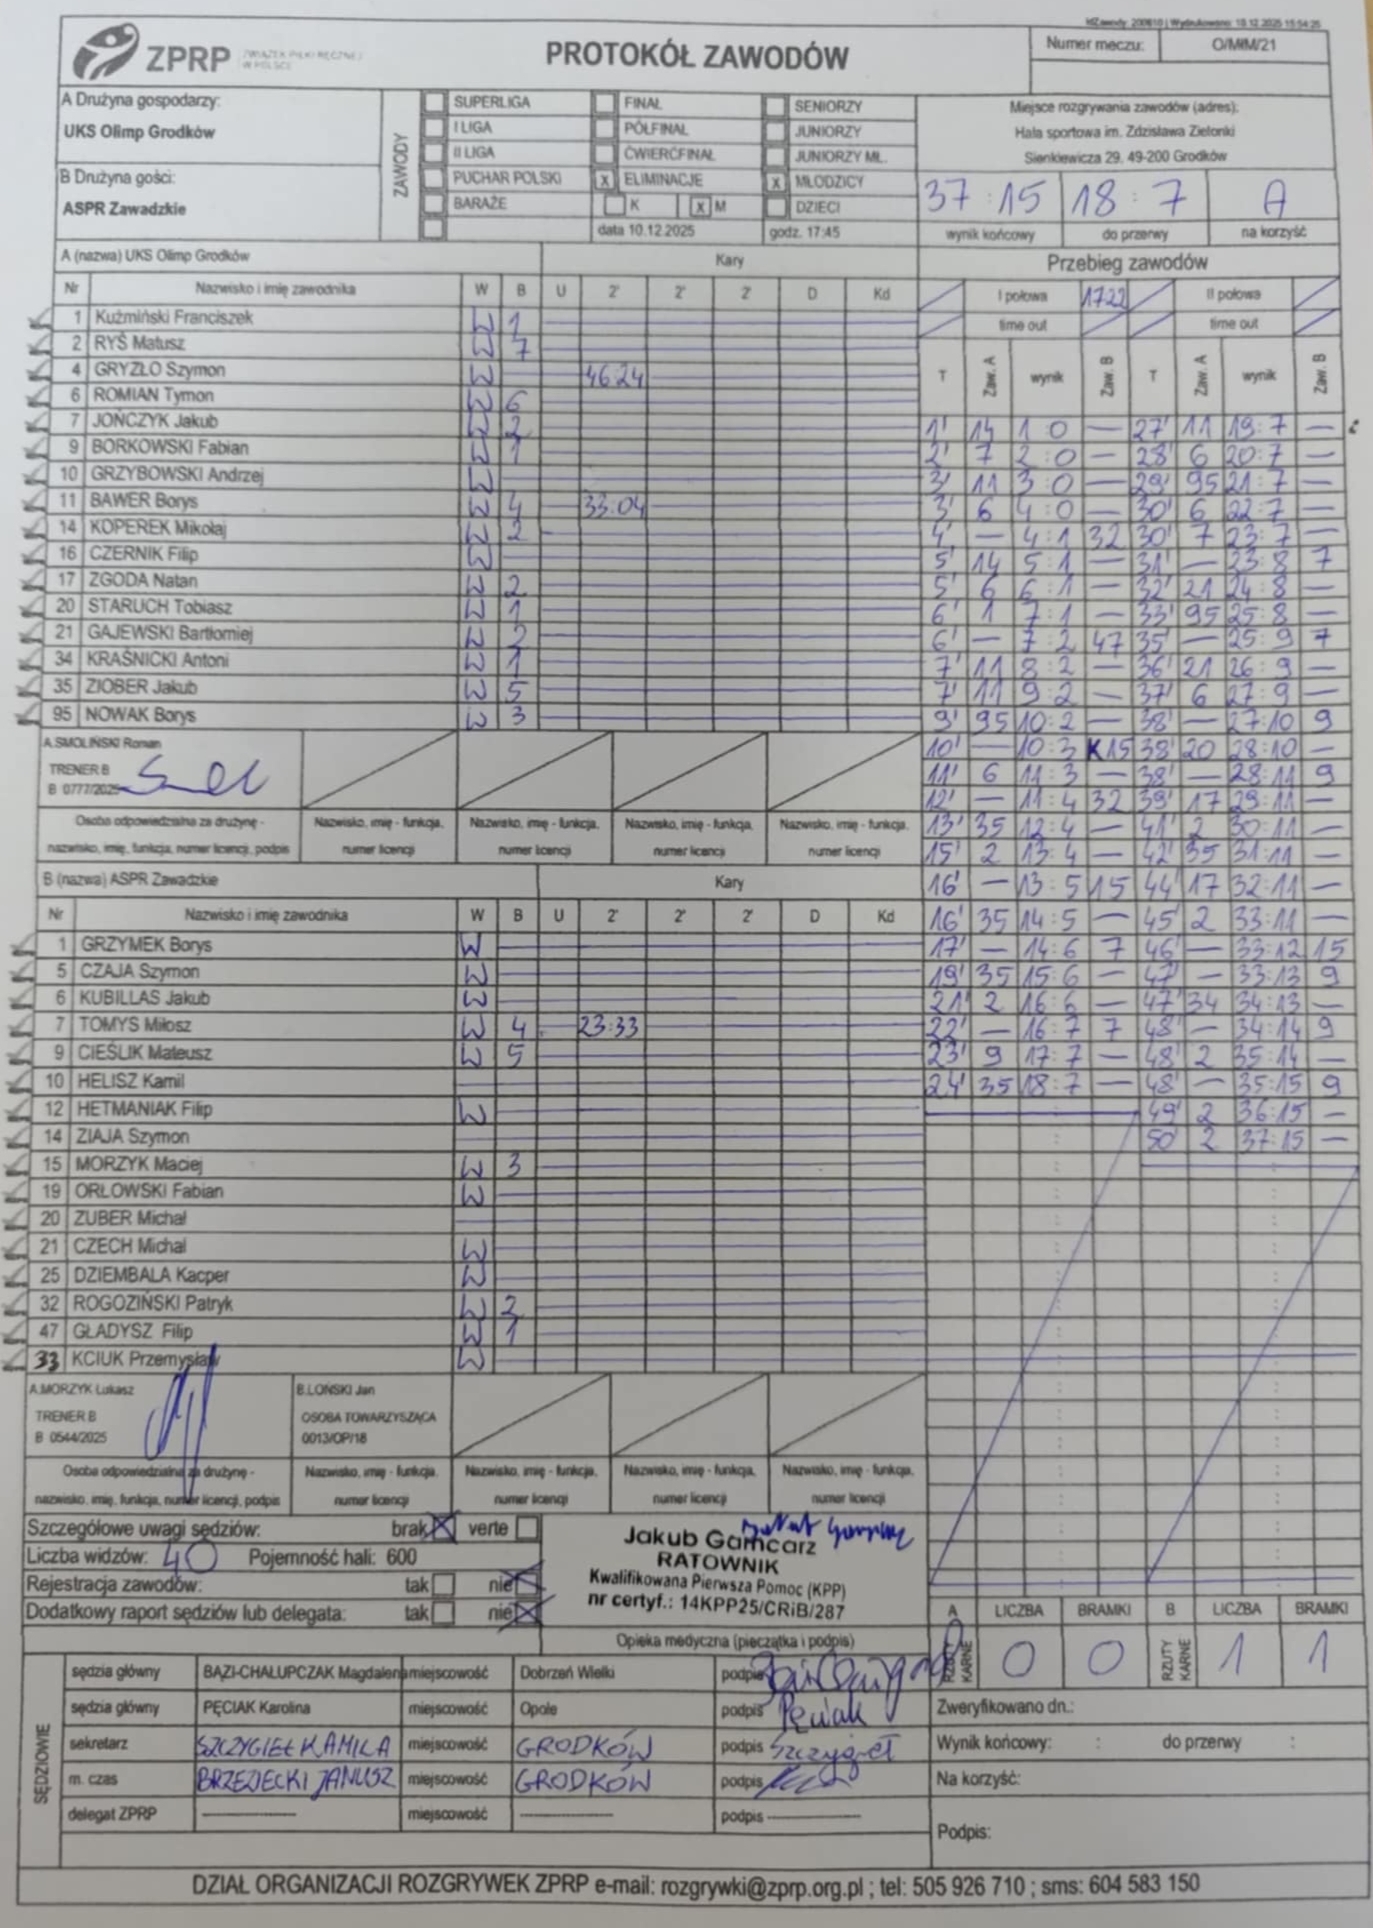 IdZawody: 200610 | Wydrukowano: 10.12.2025 15:54:25
ZPRP ZWIĄZEK PIŁKI RĘCZNEJ W POLSCE
PROTOKÓŁ ZAWODÓW
Numer meczu: O/MłM/21
A Drużyna gospodarzy:
UKS Olimp Grodków
B Drużyna gości:
ASPR Zawadzkie
ZAWODY
SUPERLIGA FINAŁ SENIORZY
I LIGA PÓŁFINAŁ JUNIORZY
II LIGA ĆWIERĆFINAŁ JUNIORZY MŁ.
PUCHAR POLSKI X ELIMINACJE X MŁODZICY
BARAŻE K X M DZIECI
data 10.12.2025 godz. 17:45
Miejsce rozgrywania zawodów (adres):
Hala sportowa im. Zdzisława Zielonki
Sienkiewicza 29, 49-200 Grodków
37:15 18:7 A
wynik końcowy do przerwy na korzyść
A (nazwa) UKS Olimp Grodków Kary
Nr Nazwisko i imię zawodnika W B U 2' 2' 2' D Kd
1 Kuźmiński Franciszek W 1
2 RYŚ Matusz W 7
4 GRYZŁO Szymon W 46:24
6 ROMIAN Tymon W 6
7 JOŃCZYK Jakub W 2
9 BORKOWSKI Fabian W 1
10 GRZYBOWSKI Andrzej W
11 BAWER Borys W 4 33:04
14 KOPEREK Mikołaj W 2
16 CZERNIK Filip W
17 ZGODA Natan W 2
20 STARUCH Tobiasz W 1
21 GAJEWSKI Bartłomiej W 2
34 KRAŚNICKI Antoni W 1
35 ZIOBER Jakub W 5
95 NOWAK Borys W 3
A.SMOLIŃSKI Roman
TRENER B
B 0777/2025
Osoba odpowiedzialna za drużynę - nazwisko, imię, funkcja, numer licencji, podpis
Nazwisko, imię - funkcja, numer licencji
Nazwisko, imię - funkcja, numer licencji
Nazwisko, imię - funkcja, numer licencji
Nazwisko, imię - funkcja, numer licencji
B (nazwa) ASPR Zawadzkie Kary
Nr Nazwisko i imię zawodnika W B U 2' 2' 2' D Kd
1 GRZYMEK Borys W
5 CZAJA Szymon W
6 KUBILLAS Jakub W
7 TOMYS Miłosz W 4 23:33
9 CIEŚLIK Mateusz W 5
10 HELISZ Kamil
12 HETMANIAK Filip W
14 ZIAJA Szymon
15 MORZYK Maciej W 3
19 ORŁOWSKI Fabian W
20 ZUBER Michał
21 CZECH Michał W
25 DZIEMBALA Kacper W
32 ROGOZIŃSKI Patryk W 2
47 GŁADYSZ Filip W 1
33 KCIUK Przemysław W
A.MORZYK Łukasz
TRENER B
B 0544/2025
B.LOŃSKI Jan
OSOBA TOWARZYSZĄCA
0013/OP/18
Osoba odpowiedzialna za drużynę - nazwisko, imię, funkcja, numer licencji, podpis
Nazwisko, imię - funkcja, numer licencji
Nazwisko, imię - funkcja, numer licencji
Nazwisko, imię - funkcja, numer licencji
Nazwisko, imię - funkcja, numer licencji
Przebieg zawodów
I połowa 17:22 II połowa
time out time out
T Zaw. A wynik Zaw. B T Zaw. A wynik Zaw. B
1' 14 1:0 — 27' 11 19:7 —
2' 7 2:0 — 28' 6 20:7 —
3' 11 3:0 — 29' 95 21:7 —
3' 6 4:0 — 30' 6 22:7 —
4' — 4:1 32 30' 7 23:7 —
5' 14 5:1 — 31' — 23:8 7
5' 6 6:1 — 32' 21 24:8 —
6' 1 7:1 — 33' 95 25:8 —
6' — 7:2 47 35' — 25:9 7
7' 11 8:2 — 36' 21 26:9 —
7' 11 9:2 — 37' 6 27:9 —
9' 95 10:2 — 38' — 27:10 9
10' — 10:3 K15 38' 20 28:10 —
11' 6 11:3 — 38' — 28:11 9
12' — 11:4 32 39' 17 29:11 —
13' 35 12:4 — 41' 2 30:11 —
15' 2 13:4 — 42' 35 31:11 —
16' — 13:5 15 44' 17 32:11 —
16' 35 14:5 — 45' 2 33:11 —
17' — 14:6 7 46' — 33:12 15
19' 35 15:6 — 47' — 33:13 9
21' 2 16:6 — 47' 34 34:13 —
22' — 16:7 7 48' — 34:14 9
23' 9 17:7 — 48' 2 35:14 —
24' 35 18:7 — 48' — 35:15 9
49' 2 36:15 —
50' 2 37:15 —
Szczegółowe uwagi sędziów: brak X verte
Liczba widzów: 40 Pojemność hali: 600
Rejestracja zawodów: tak nie X
Dodatkowy raport sędziów lub delegata: tak nie X
Jakub Gamcarz
RATOWNIK
Kwalifikowana Pierwsza Pomoc (KPP)
nr certyf.: 14KPP25/CRiB/287
Opieka medyczna (pieczątka i podpis)
A LICZBA BRAMKI B LICZBA BRAMKI
RZUTY KARNE 0 0 RZUTY KARNE 1 1
SĘDZIOWIE
sędzia główny BAZI-CHAŁUPCZAK Magdalena miejscowość Dobrzeń Wielki podpis
sędzia główny PĘCIAK Karolina miejscowość Opole podpis Pęciak
sekretarz SZCZYGIEŁ KAMILA miejscowość GRODKÓW podpis Szczygieł
m. czas BRZEZIECKI JANUSZ miejscowość GRODKÓW podpis
delegat ZPRP ---------- miejscowość ---------- podpis ----------
Zweryfikowano dn.:
Wynik końcowy: : do przerwy :
Na korzyść:
Podpis:
DZIAŁ ORGANIZACJI ROZGRYWEK ZPRP e-mail: rozgrywki@zprp.org.pl ; tel: 505 926 710 ; sms: 604 583 150